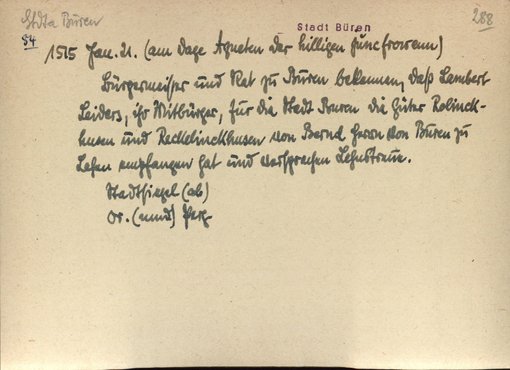 StdtA Büren
Stadt Büren
288
54
1515 Jan. 21. (am dage Agneten der hilligen juncfrowenn)
Bürgermeister und Rat zu Büren bekennen, daß Lambert
Leiders, ihr Mitbürger, für die Stadt Büren die Güter Rolinck-
husen und Reckelinckhusen von Bernd Herrn von Büren zu
Lehen empfangen hat und versprechen Lehnstreue.
Stadtsiegel (ab)
Or. (mnd) Perg.